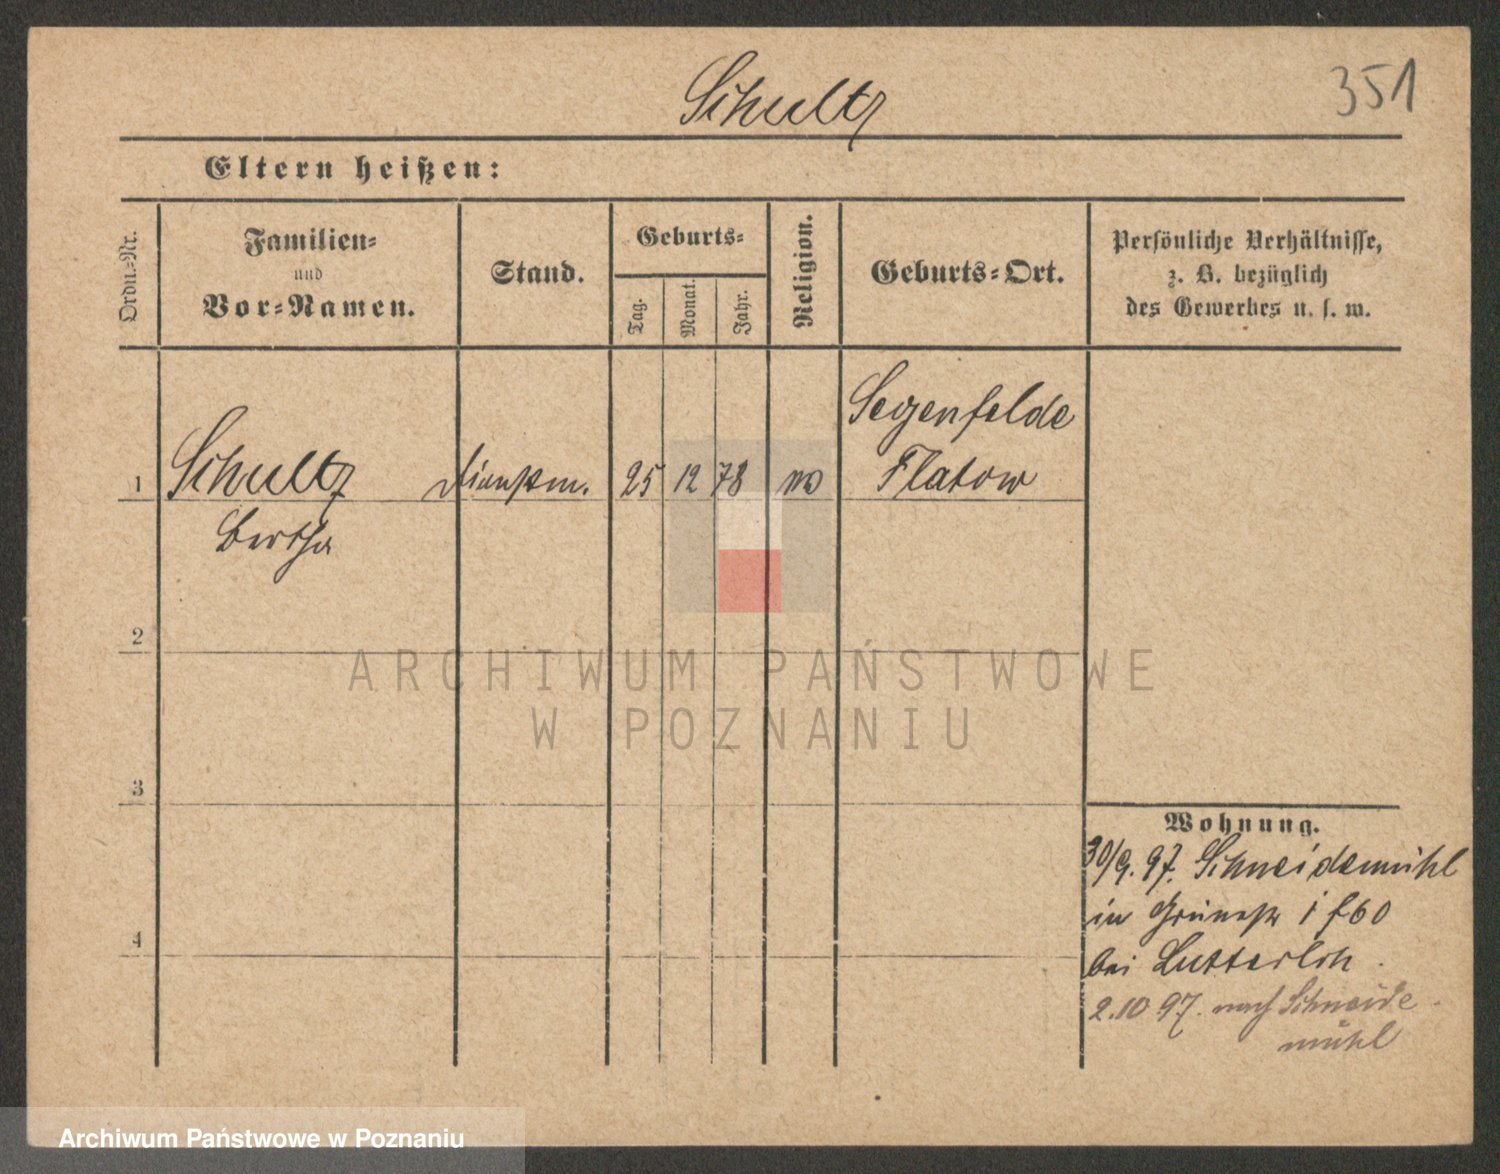 Schultz
351
Eltern heißen:
Ordn.-Nr.
Familien-
und
Vor-Namen.
Stand.
Geburts-
Tag.
Monat.
Jahr.
Religion.
Geburts-Ort.
Persönliche Verhältnisse,
z. B. bezüglich
des Gewerbes u. s. w.
1
Schultz
Bertha
Dienstm.
25
12
78
Segenfelde
Flatow
2
3
4
Wohnung.
30/9. 97. Schneidemühl
in Grünestr
bei Lutterloh
2.10 97. nach Schneide
mühl
ARCHIWUM PAŃSTWOWE
W POZNANIU
Archiwum Państwowe w Poznaniu